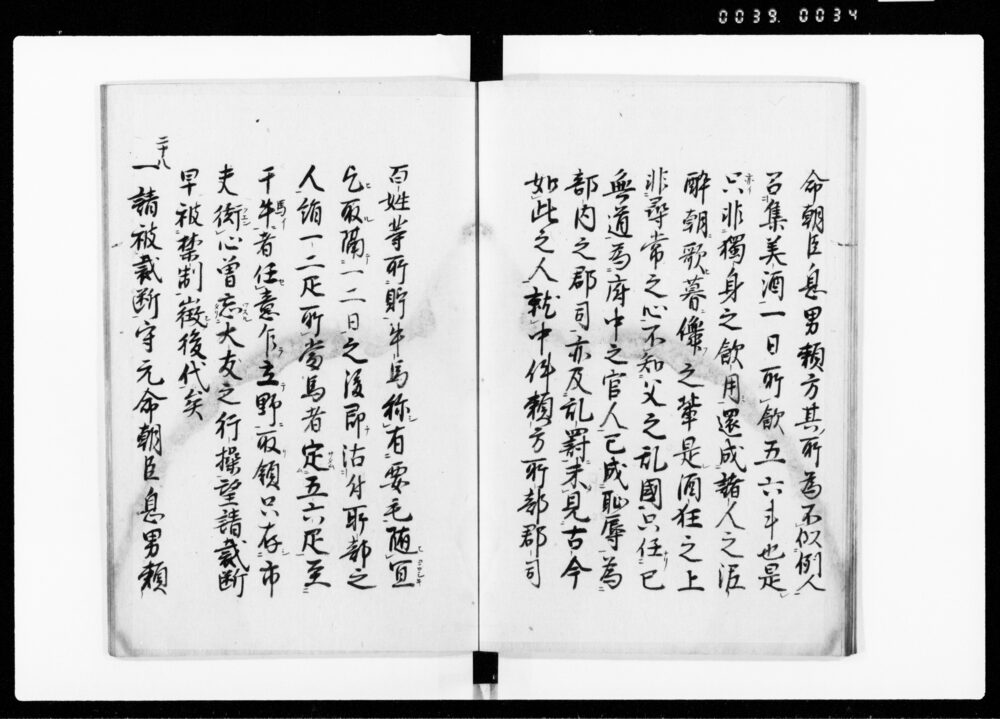 0039. 0034
命朝臣息男頼方其所為不似例人
召集美酒一日所飲五六斗也是
只非獨身之飲用還成諸人之泥
酔朝歌暮儛之輩是酒狂之上
非尋常之心不知父之乱國只任己
無道為府中之官人已成恥辱為
部内之郡司亦及乱罸未見古今
如此之人就中件頼方所部郡司
百姓等所貯牛馬称有要毛随宜
乞取隔一二日之後即沽付所部之
人絹一二疋所當馬者定五六疋至
干牛者任意斤立野取領只存市
夫衒心曽忘大友之行操望請裁断
早被禁制徴後代矣
二十八
一請被裁断守元命朝臣息男頼